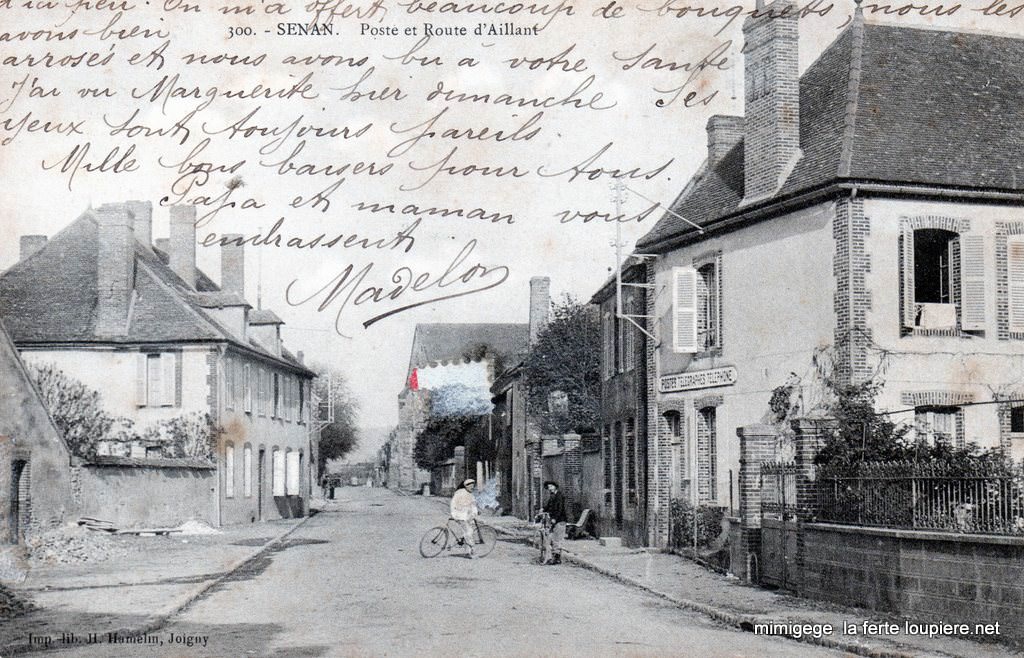 à la peu. On m'a offert beaucoup de bouquets, nous les
300. - SENAN. Poste et Route d'Aillant
avons bien
arrosés et nous avons bu à votre santé
J'ai vu Marguerite hier dimanche Ses
yeux sont toujours pareils.
Mille bons baisers pour tous.
Papa et maman vous
embrassent
Madelon
POSTES TELEGRAPHES TELEPHONE
Imp. lib. H. Hamelin, Joigny
mimigege la ferte loupiere.net